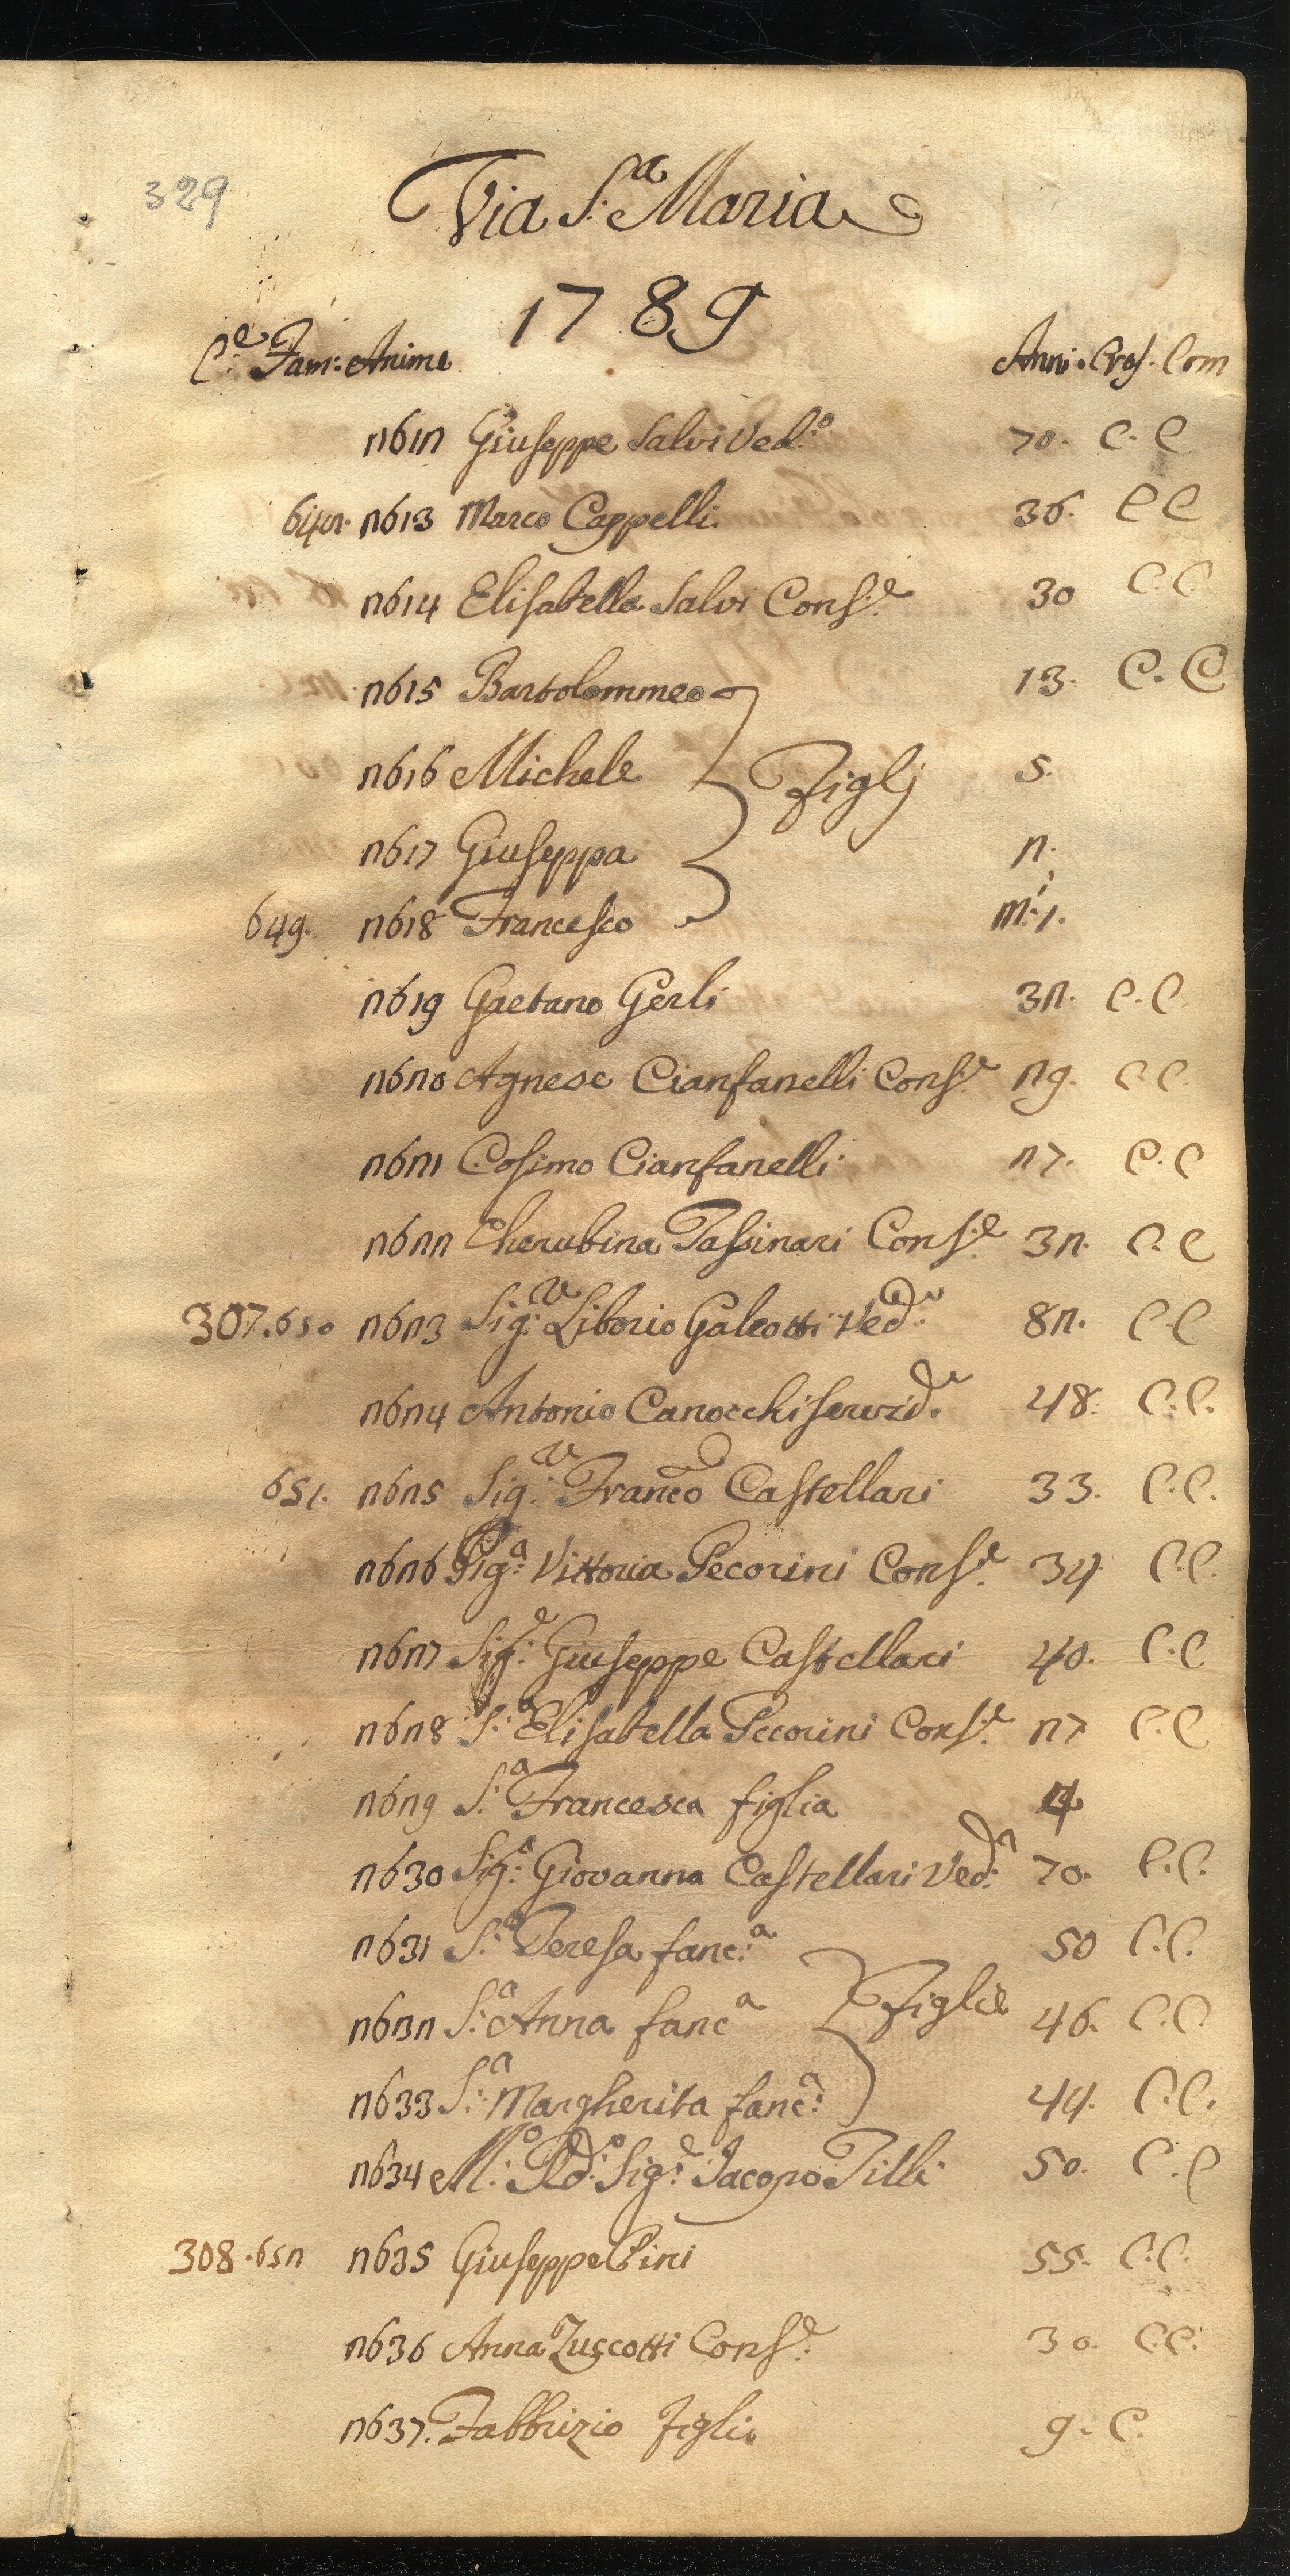 329
Via S.ª Maria
1789
C.e Fam: Anime Anni. Cres. Com
2612 Giuseppe Salvi Ved.o 70. C. C
2613 Marco Cappelli 36. C C
2614 Elisabetta Salvi Cons.e 30 C. C.
2615 Bartolommeo 13. C. C
2616 Michele Figlj 5.
2617 Giuseppa 2.
649. 2618 Francesco
2619 Gaetano Gerli 32. C. C.
2620 Agnese Cianfanelli Cons.e 29. C. C.
2621 Cosimo Cianfanelli 27. C. C
2622 Cherubina Tassinari Cons.e 32. C. C
307. 650 2623 Sig.r Liborio Galeotti Ved.o 82. C. C
2624 Antonio Canocchi servid.e 48. C. C.
651. 2625 Sig.r Franco Castellari 33. C. C.
2626 Sig.a Vittoria Pecorini Cons.e 34 C. C.
2627 Sig.e Giuseppe Castellari 40. C. C
2628 S.a Elisabetta Pecorini Cons.e 27 C. C
2629 S.a Francesca figlia 4
2630 Sig.a Giovanna Castellari Ved.a 70. C. C.
2631 S.a Teresa fanc.a 50 C. C.
2632 S.a Anna fanc.a Figlie 46. C. C
2633 S.a Margherita fanc.a 44. C. C.
2634 M.o Rd.o Sig.e Jacopo Tilli 50. C. C
308. 652 2635 Giuseppe Pini 55. C. C.
2636 Anna Zuccotti Cons.e 30. C. C.
2637. Fabbrizio figlio 9. C.